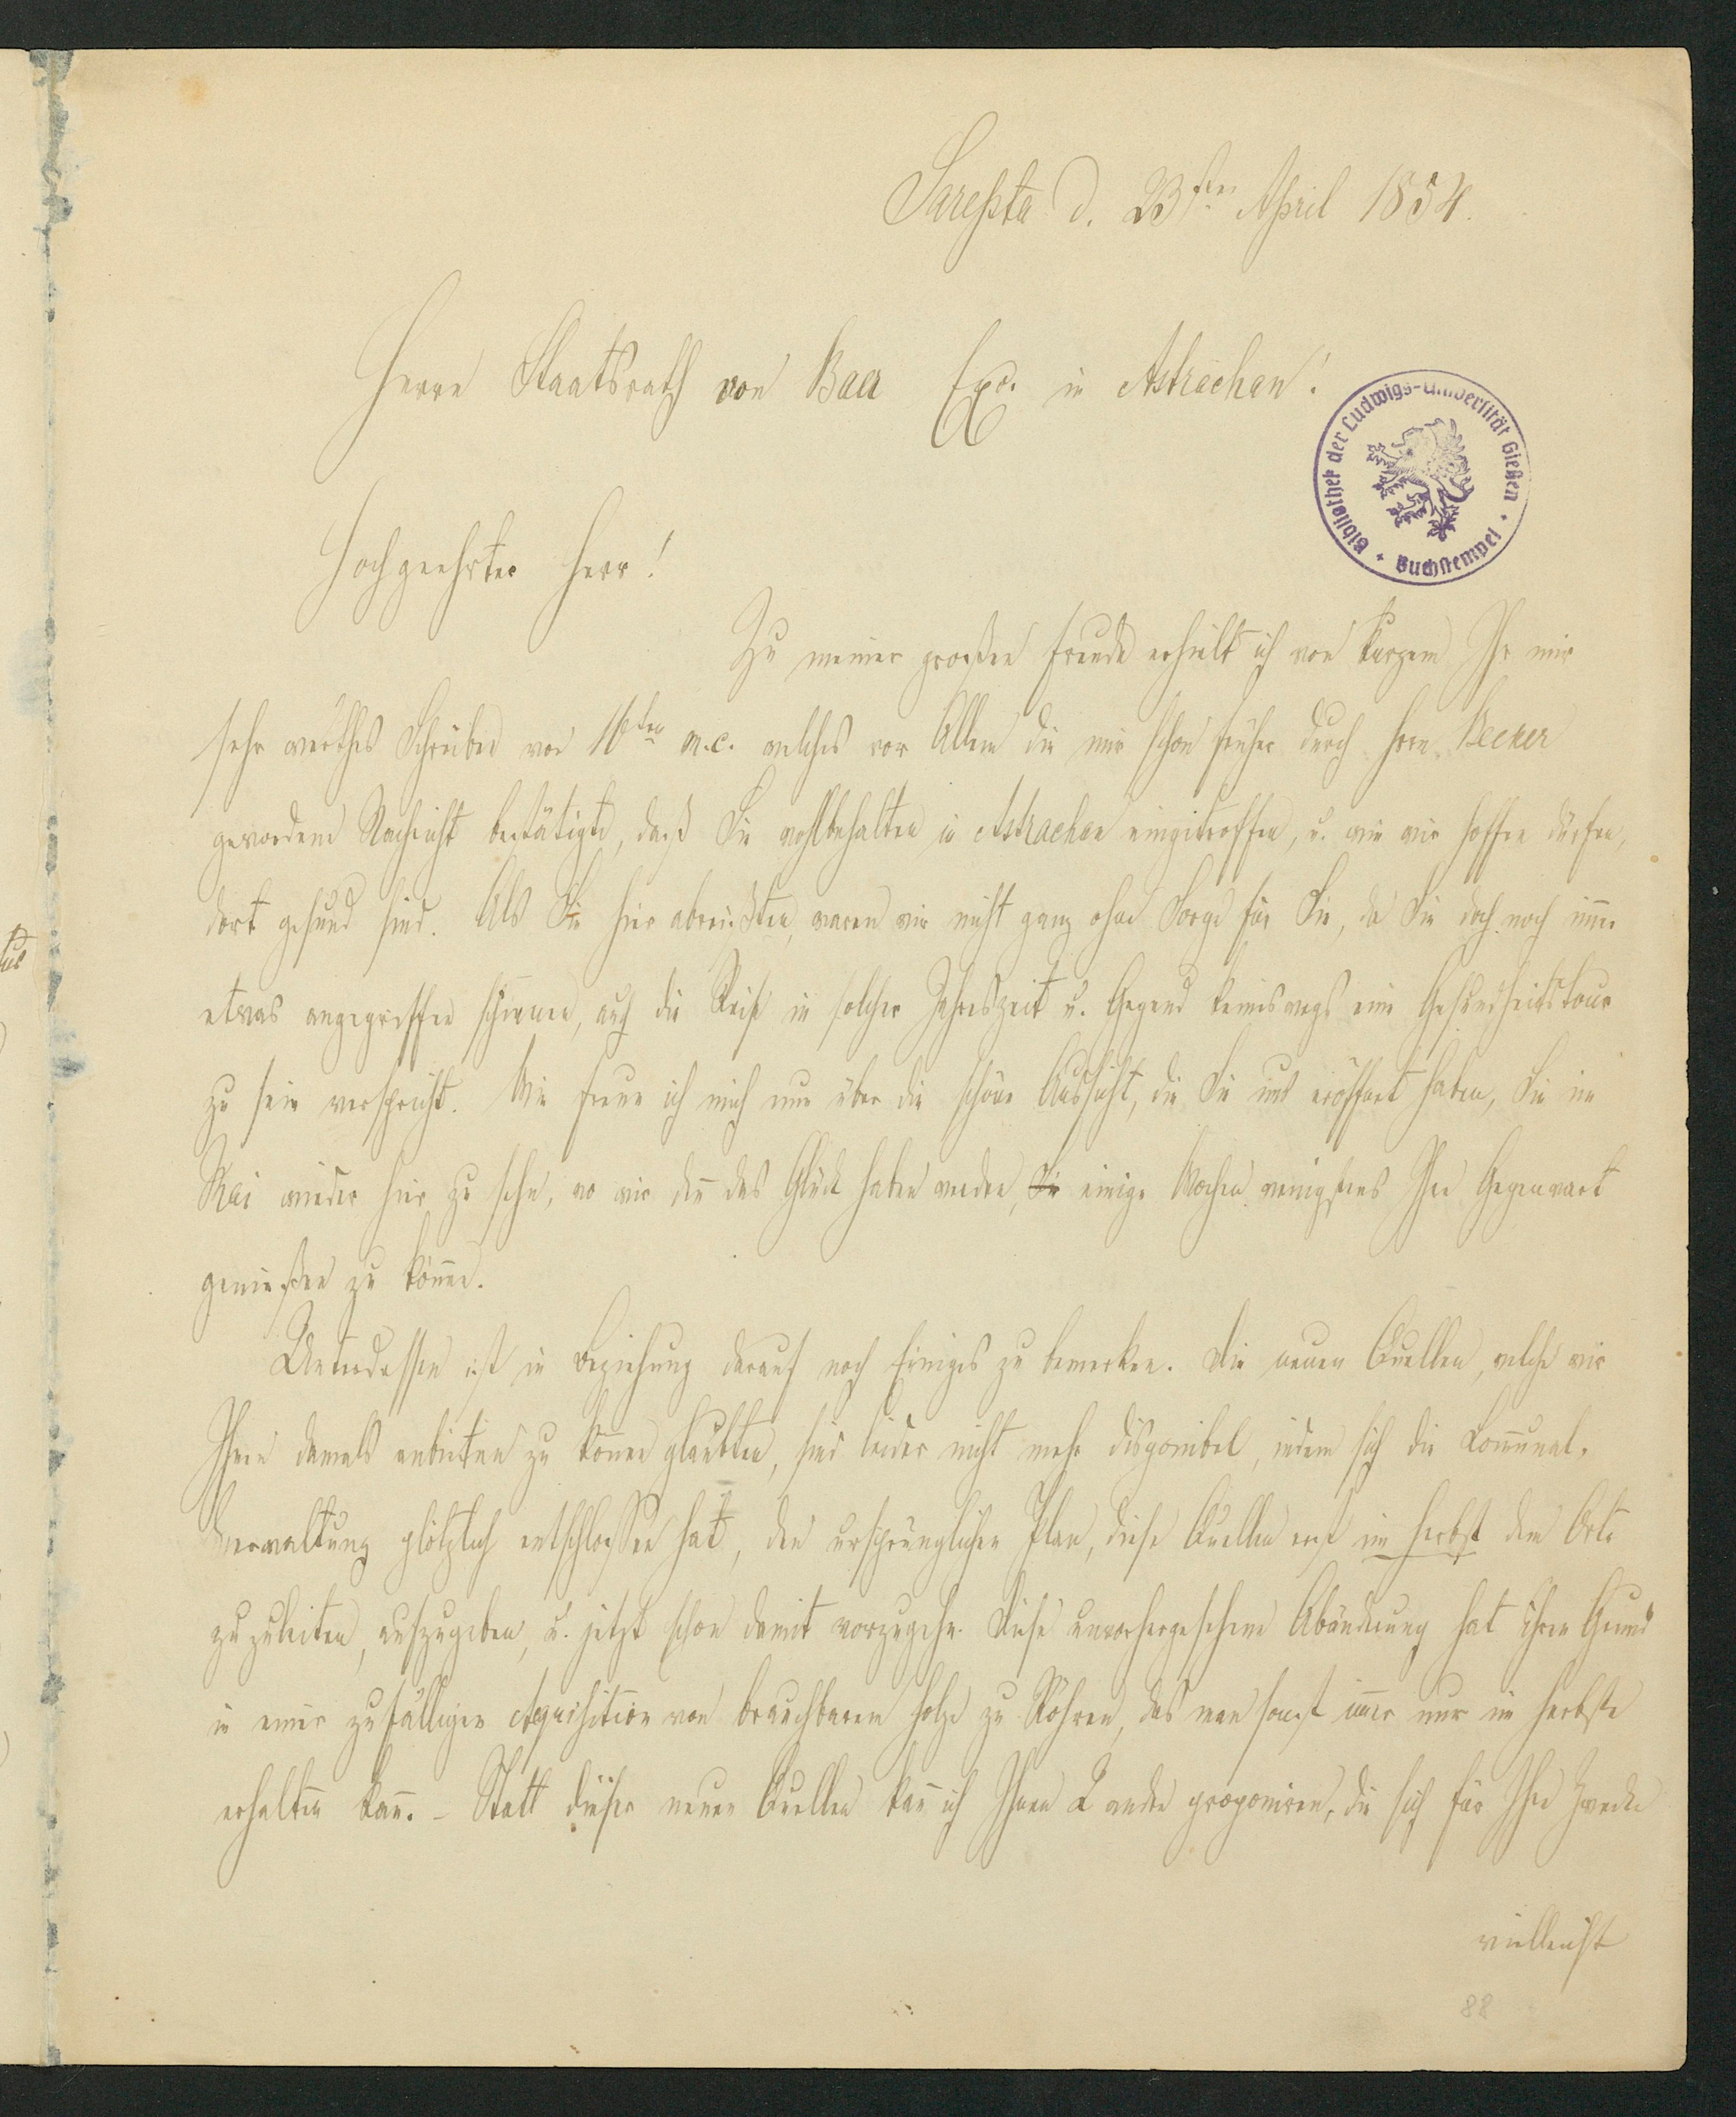 Sarepta d. 23sten April 1854.
Herrn Staatsrath von Baer Exc. in Astrachan!
Bibliothek der Ludwigs-Universität Gießen
Buchstempel
Hochgeehrter Herr!
Zu meiner großen Freude erhielt ich vor kurzem Ihr mir
sehr werthes Schreiben vom 16ten m.c. welches vor Allem die mir schon früher durch Hrn. Becker
gewordene Nachricht bestätigte, daß Sie wohlbehalten in Astrachan eingetroffen, u. wie wir hoffen dürfen,
dort gesund sind. Als Sie hier abreis'ten, waren wir nicht ganz ohne Sorge für Sie, da Sie doch noch imer
etwas angegriffen schienen, auch die Reise in solcher Jahreszeit u. Gegend keineswegs eine Gesundheitstour
zu sein verspricht. Wie freue ich mich nun über die schöne Aussicht, die Sie uns eröffnet haben, Sie im
Mai wieder hier zu sehn, wo wir den das Glück haben werden, Sie einige Wochen wenigstens Ihre Gegenwart
genießen zu könen.
Unterdessen ist in Beziehung darauf noch Einiges zu bemerken. Die neuen Quellen, welche wir
Ihnen damals anbieten zu könen glaubten, sind leider nicht mehr disponibel, indem sich die Comunal-
Verwaltung plötzlich entschlossen hat, den ursprünglichen Plan, diese Quellen erst im Herbst dem Orte
zuzuleiten, aufzugeben, u. jetzt schon damit vorzugehn. Diese unvorhergesehene Abänderung hat ihren Grund
in einer zufälligen Aquisition von brauchbarem Holze zu Röhren, das man sonst imer nur im Herbste
erhalten kan. – Statt dieser neuen Quellen kan ich Ihnen 2 andre proponiren, die sich für Ihre Zwecke
vielleicht
88